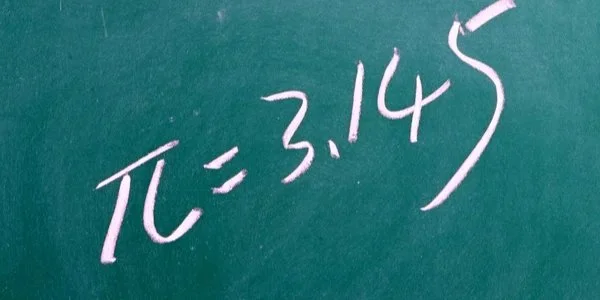 π=3.145